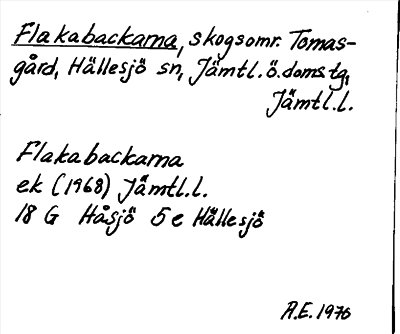 Flakabackarna, skogsomr. Tomas-
gård, Hällesjö sn, Jämtl.ö.doms.tg,
Jämtl.l.
Flakabackarna
ek (1968) Jämtl.l.
18 G Håsjö 5 e Hällesjö
A.E. 1976